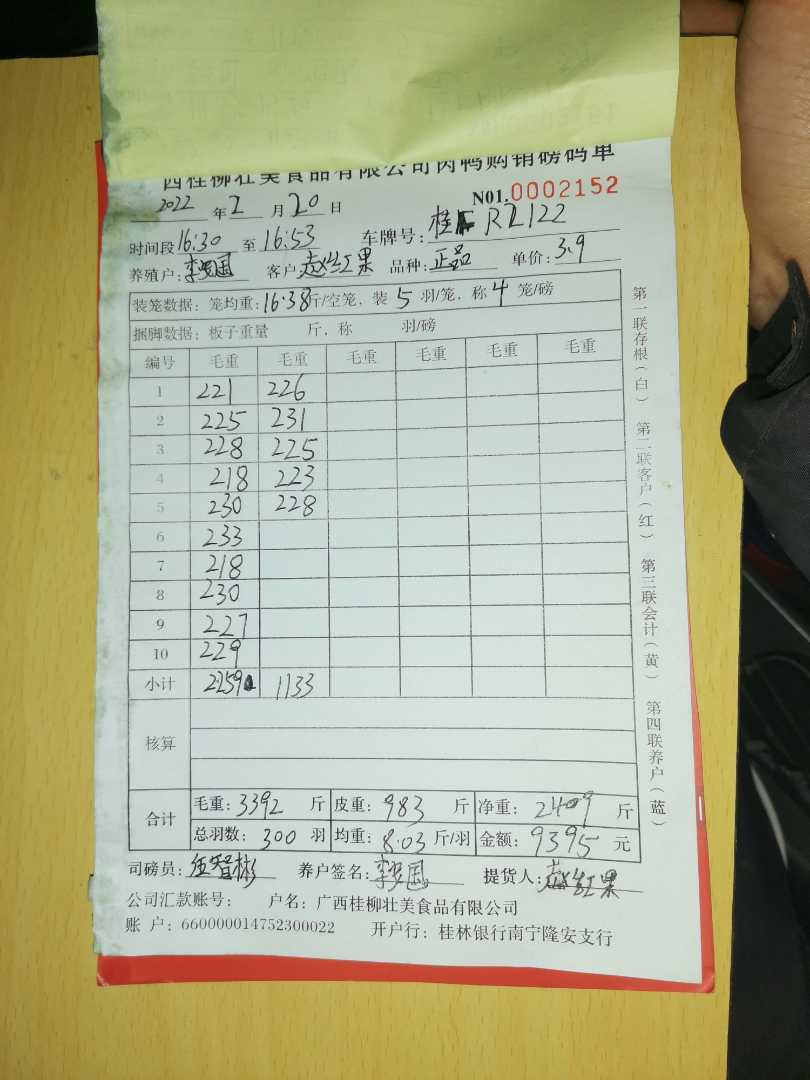 西桂柳壮美食品有限公司肉鸭购销磅码单
2022 年 2 月 20 日 N01.0002152
时间段 16:30 至 16:53 车牌号: 桂 R2122
养殖户: 客户: 赵红果 品种: 正品 单价: 3.9
装笼数据: 笼均重: 16.38 斤/空笼, 装 5 羽/笼, 称 4 笼/磅
捆脚数据: 板子重量 斤, 称 羽/磅
编号 毛重 毛重 毛重 毛重 毛重 毛重
1 221 226
2 225 231
3 228 225
4 218 223
5 230 228
6 233
7 218
8 230
9 227
10 229
小计 2259 1133
核算
合计 毛重: 3392 斤 皮重: 983 斤 净重: 2409 斤
总羽数: 300 羽 均重: 8.03 斤/羽 金额: 9395 元
司磅员: 养户签名: 提货人: 赵红果
公司汇款账号: 户名: 广西桂柳壮美食品有限公司
账 户: 660000014752300022 开户行: 桂林银行南宁隆安支行
第一联存根(白) 第二联客户(红) 第三联会计(黄) 第四联养户(蓝)